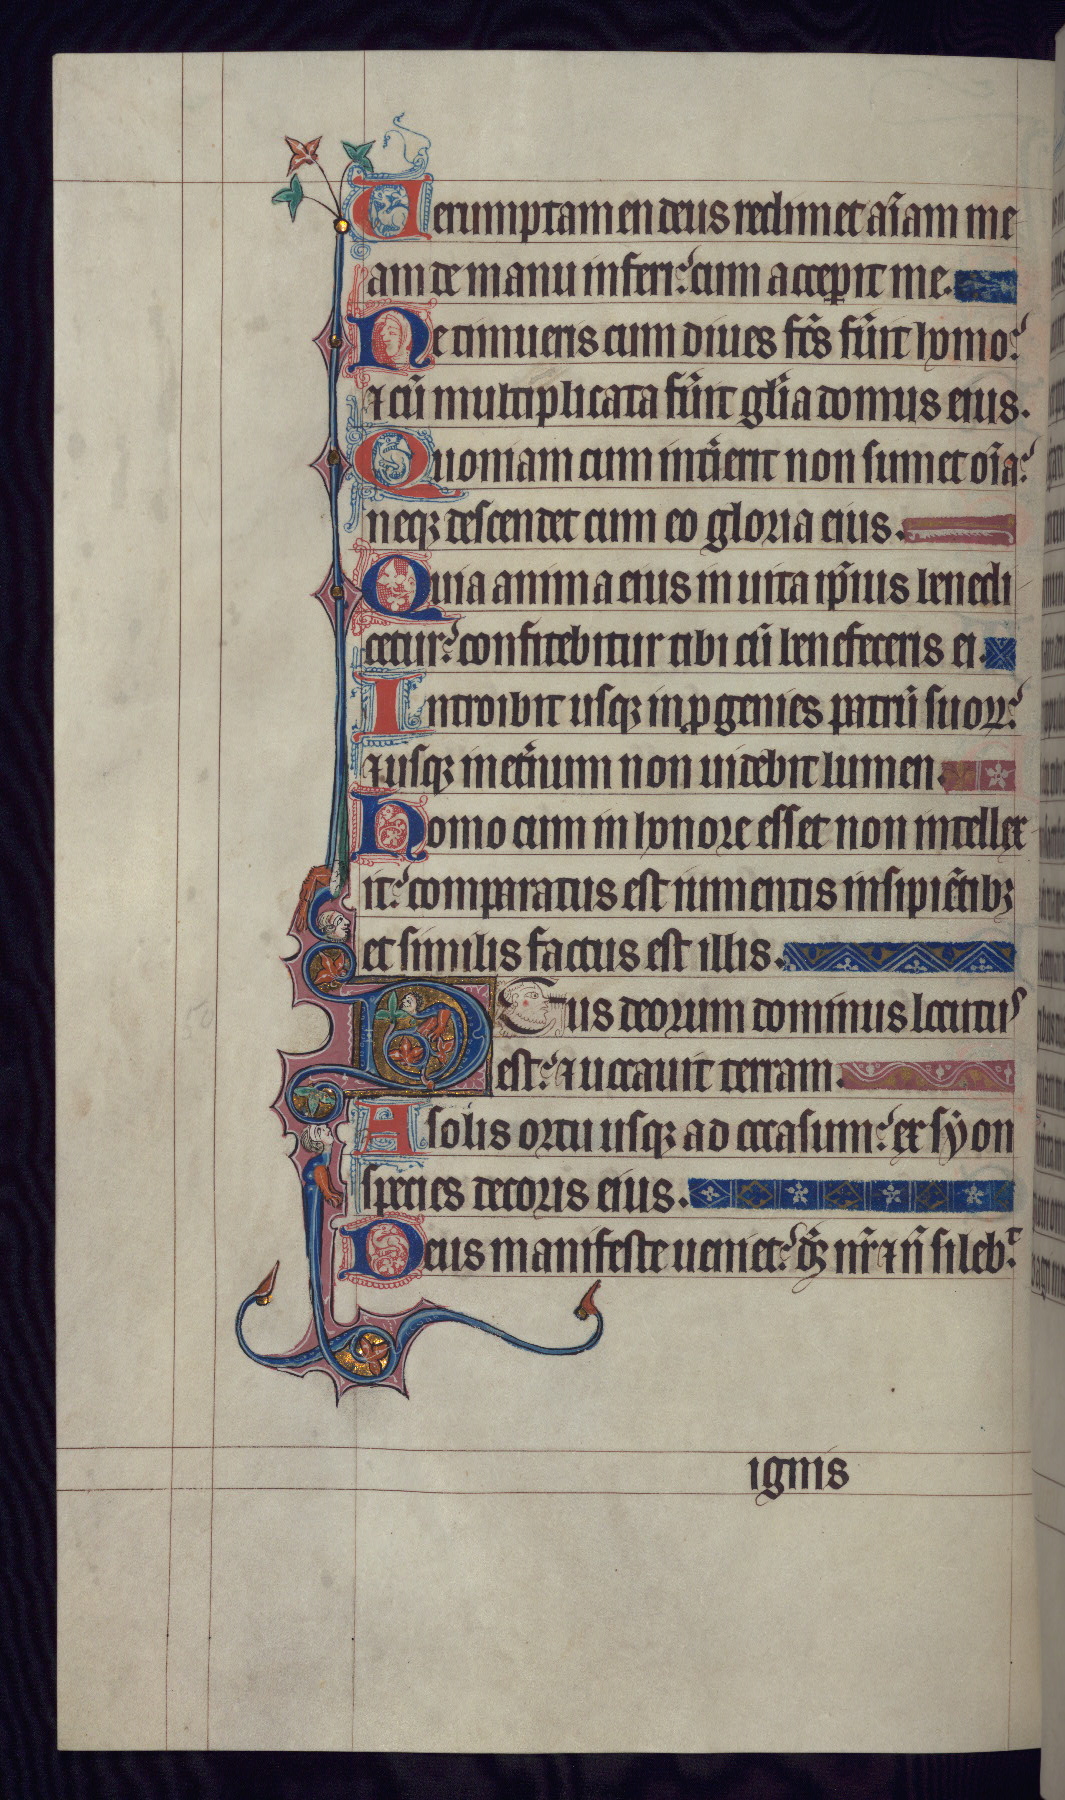 Uerumptamen deus redimet aīam me
am de manu inferi: cum acceꝑit me.
Ne timueris cum diues fc̄s fūit homo:
⁊ cū multiplicata fūit gl̄ia domus eius.
Quoniam cum int̄ierit non sumet oīa:
neqꝫ descendet cum eo gloria eius.
Quia anima eius in uita ip̄ius benedi
cetur: confitebitur tibi cū benefeceris ei.
Introibit usqꝫ in ꝓgenies patrū suoꝝ:
⁊ usqꝫ in et̄num non uidebit lumen.
Homo cum in honore esset non intellex
it: comparatus est iumentis insipiētibꝫ
et similis factus est illis.
Deus deorum dominus locutus
est: ⁊ uocauit terram.
A solis ortu usqꝫ ad occasum: ex syon
species decoris eius.
Deus manifeste ueniet: d̄s nr̄ ⁊ n̄ sileb᷑
ignis